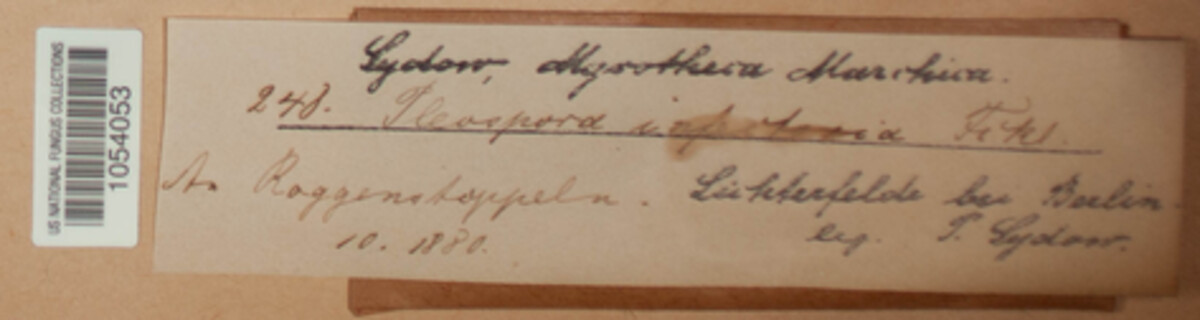 US NATIONAL FUNGUS COLLECTIONS
1054053
Sydow, Mycotheca Marchica.
248. Pleospora Fckl.
An Roggenstoppeln. Lichterfelde bei Berlin
10. 1880. leg. P. Sydow.